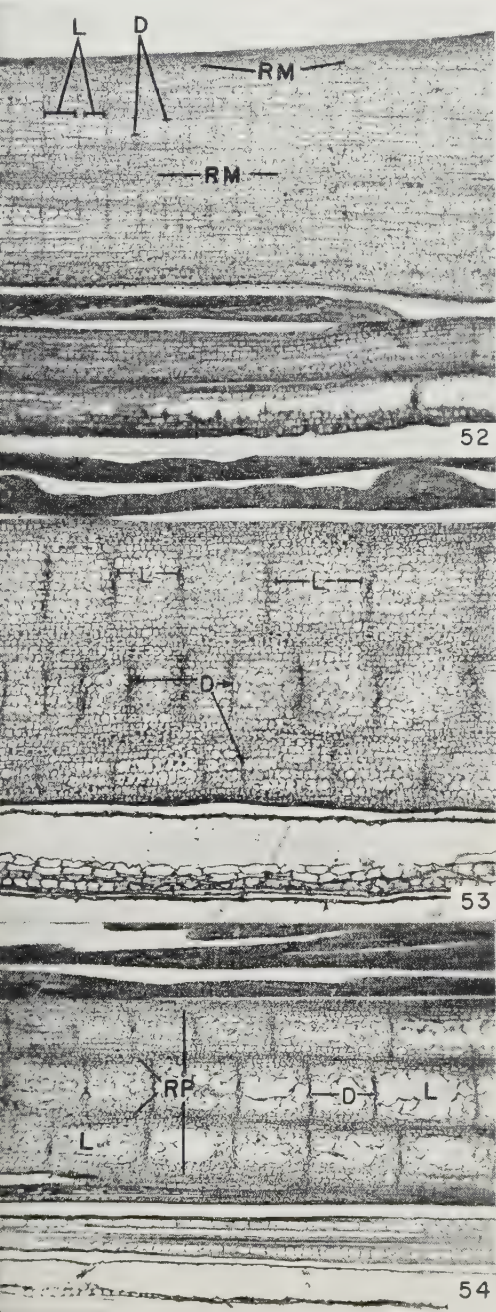 L D
RM
RM
52
L L
D
53
RP D L
L
54